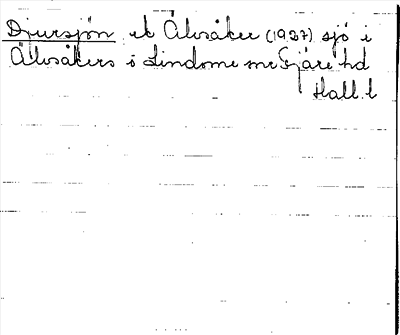 Djursjön, ek Älvsåker (1937) sjö i
Älvsåkers o Lindome snr Fjäre hd
Hall. l